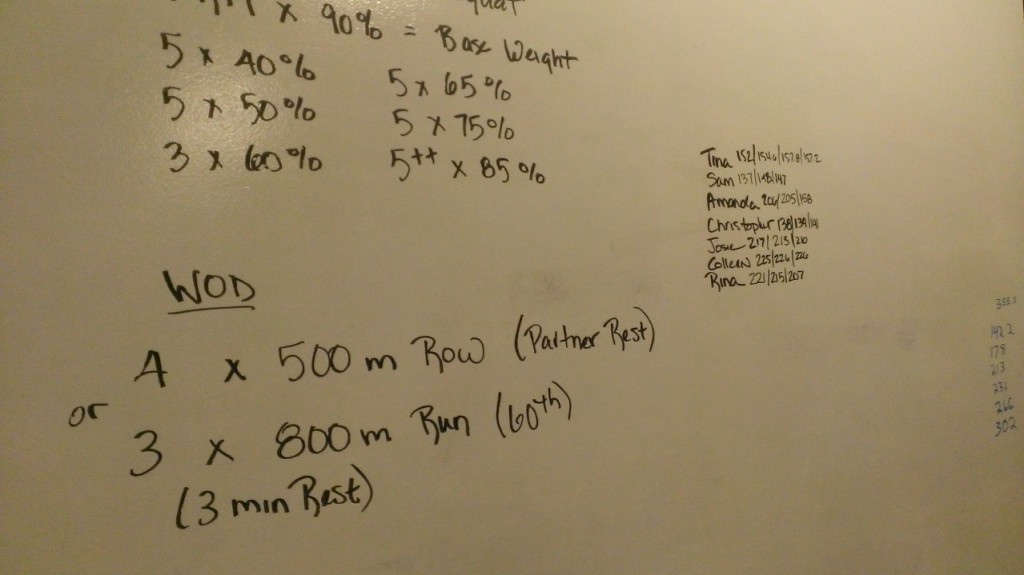 x 90% = Base Weight
5 x 40%
5 x 50%
3 x 60%
5 x 65%
5 x 75%
5++ x 85%
WOD
4 x 500 m Row (Partner Rest)
or
3 x 800 m Run (60th)
(3 min Rest)
Tina 152/154/157.8/
Sam 137/148/147
Amanda 204/205/158
Christopher 138/139/141
Josie 217/213/210
Colleen 225/226/226
Rina 221/215/207
192.2
178
213
231
266
302